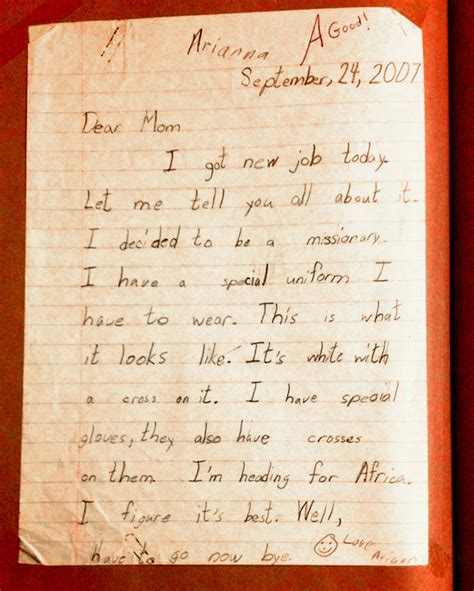 A Good!
Arianna
September, 24, 2007
Dear Mom
I got new job today.
Let me tell you all about it.
I decided to be a missionary.
I have a special uniform I
have to wear. This is what
it looks like. It's white with
a cross on it. I have special
gloves, they also have crosses
on them. I'm heading for Africa.
I figure it's best. Well,
have to go now bye. Love